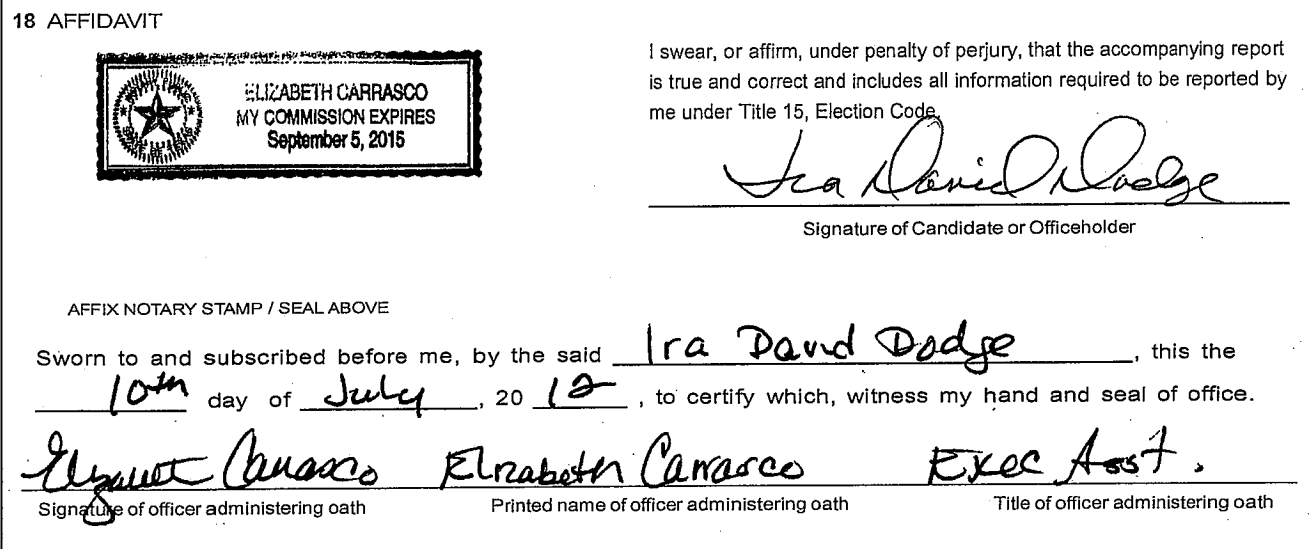 18 AFFIDAVIT
ELIZABETH CARRASCO
MY COMMISSION EXPIRES
September 5, 2015
I swear, or affirm, under penalty of perjury, that the accompanying report
is true and correct and includes all information required to be reported by
me under Title 15, Election Code.
Ira David Dodge
Signature of Candidate or Officeholder
AFFIX NOTARY STAMP / SEAL ABOVE
Sworn to and subscribed before me, by the said Ira David Dodge, this the
10th day of July, 20 12, to certify which, witness my hand and seal of office.
Elizabeth Carrasco Elizabeth Carrasco Exec Asst.
Signature of officer administering oath Printed name of officer administering oath Title of officer administering oath